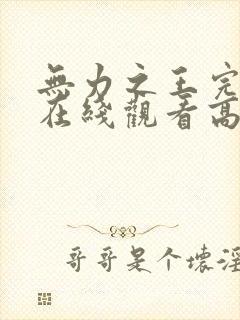 無力之王完
在綫觀看高
哥哥是个壞淫